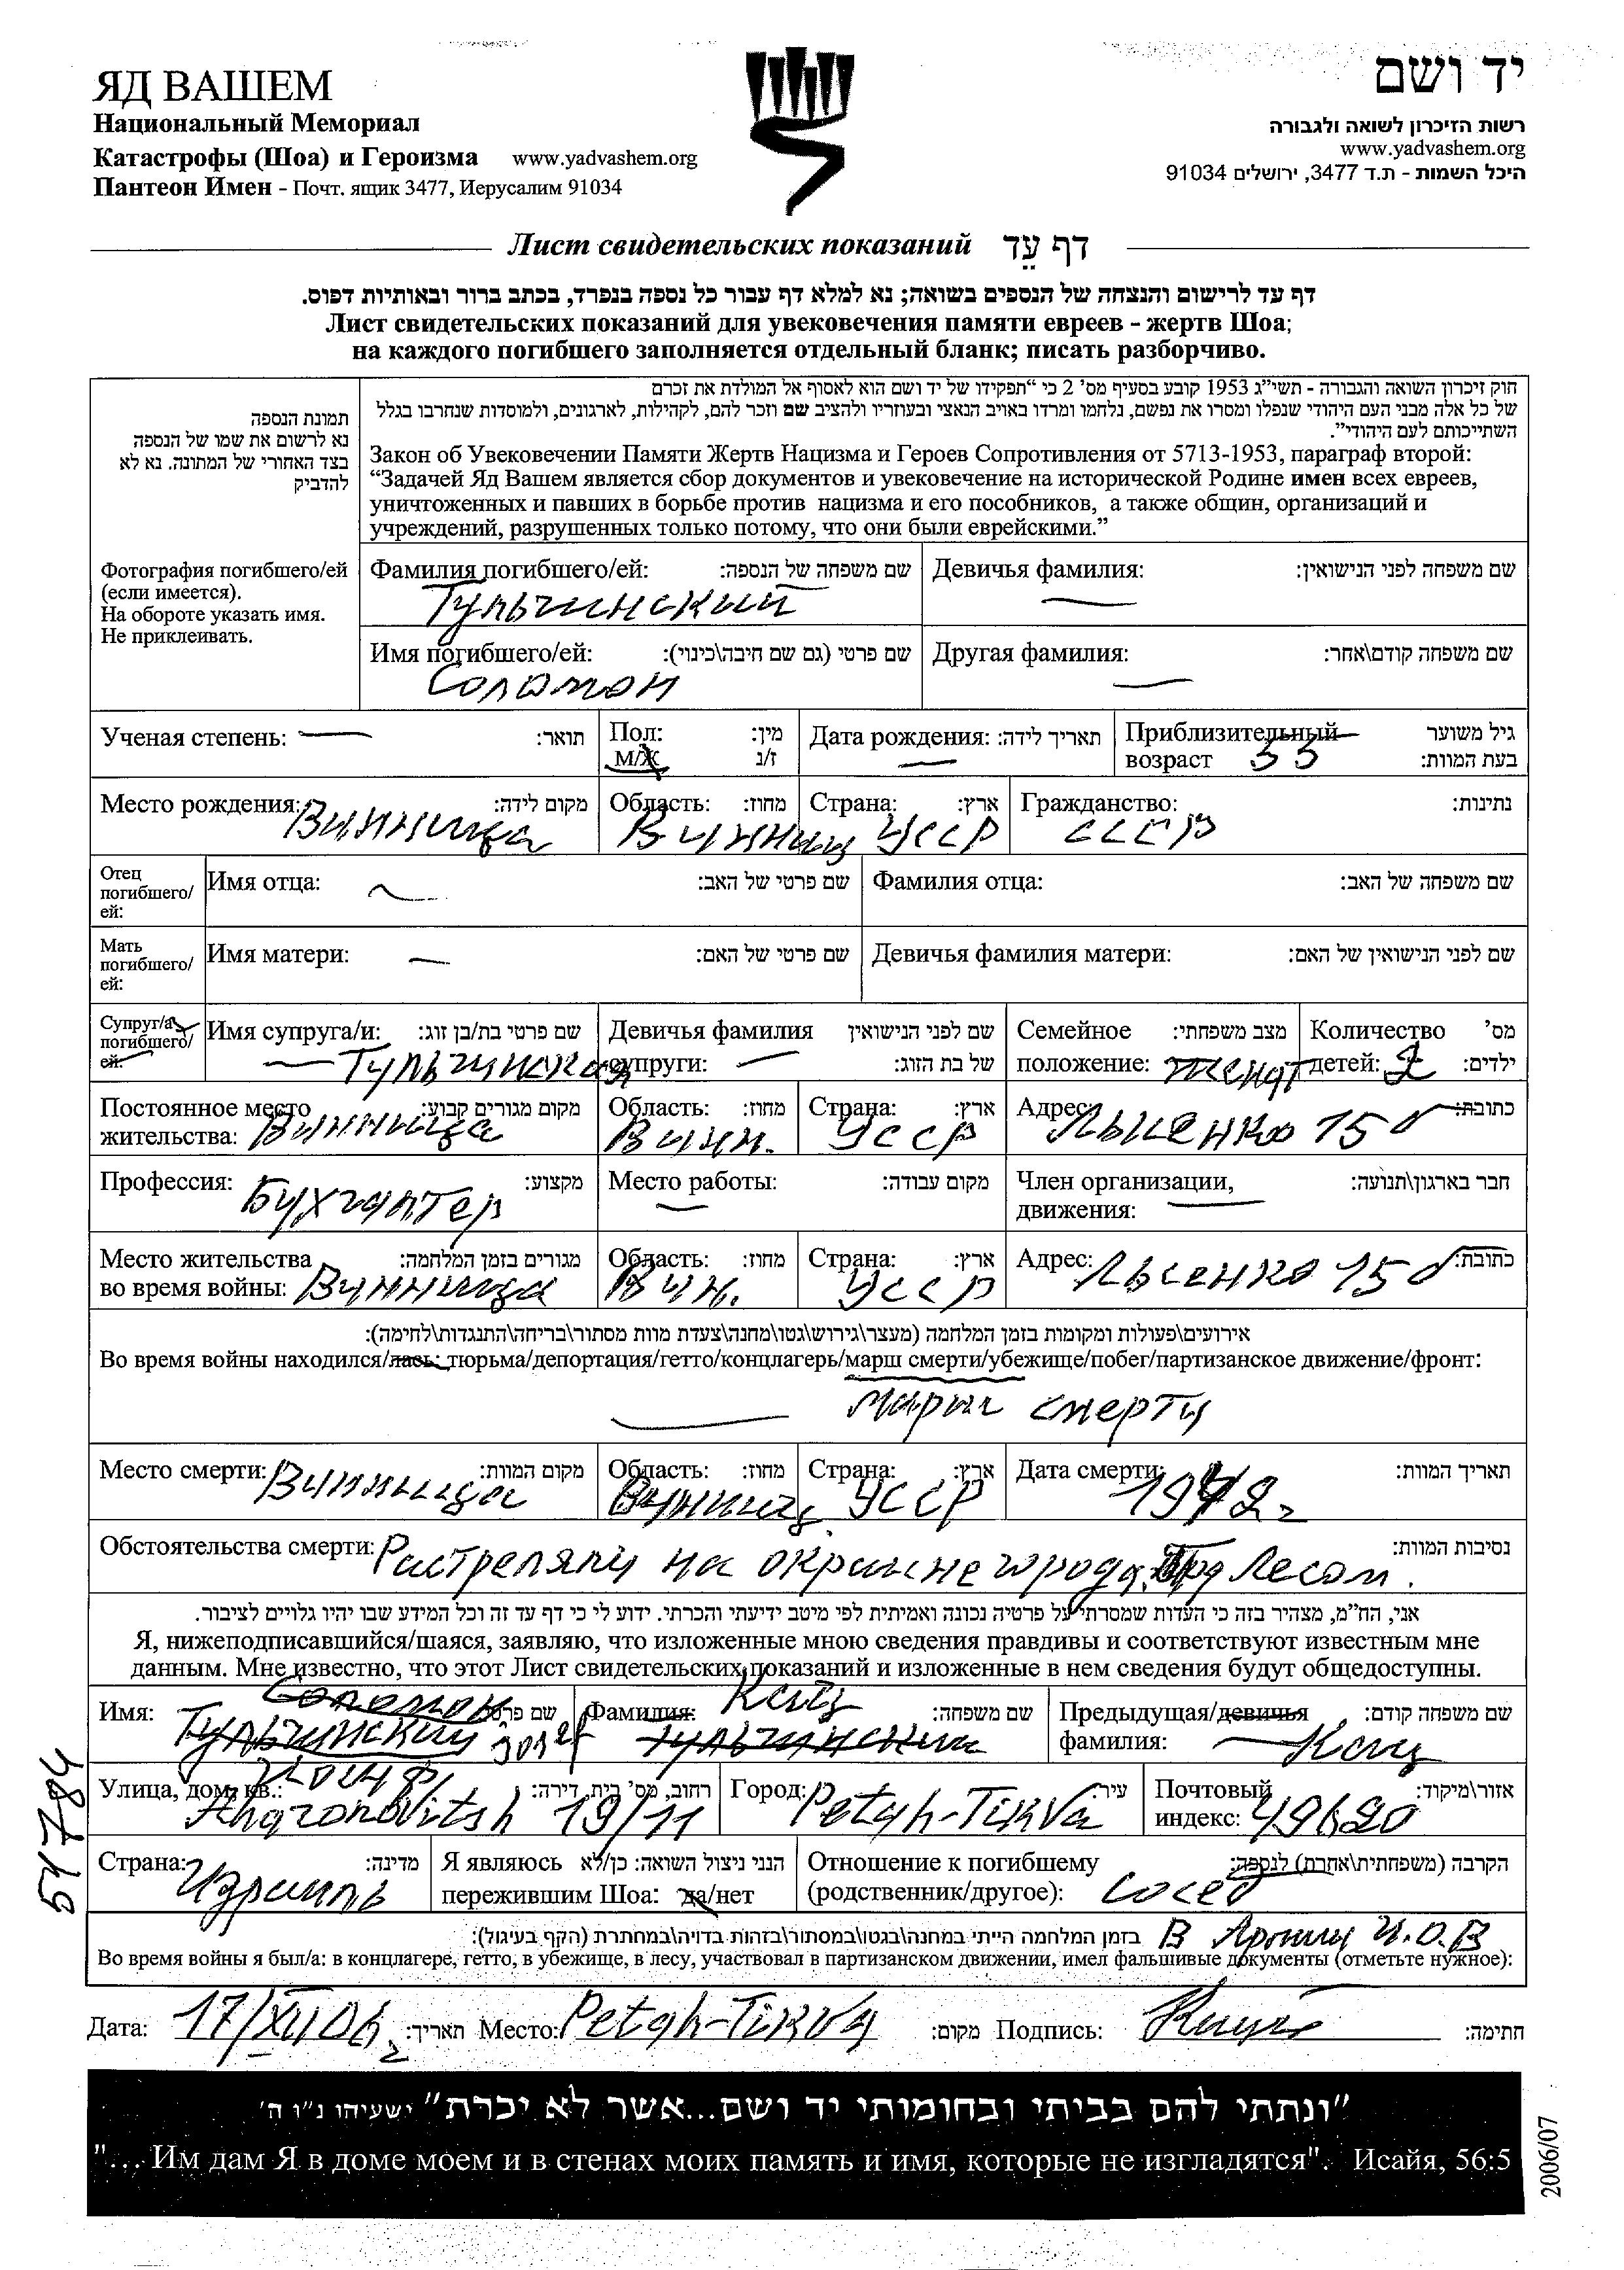 ЯД ВАШЕМ
Национальный Мемориал
Катастрофы (Шоа) и Героизма www.yadvashem.org
Пантеон Имен - Почт. ящик 3477, Иерусалим 91034
יד ושם
רשות הזיכרון לשואה ולגבורה
www.yadvashem.org
היכל השמות - ת.ד 3477, ירושלים 91034
Лист свидетельских показаний דף עֵד
דף עד לרישום והנצחה של הנספים בשואה; נא למלא דף עבור כל נספה בנפרד, בכתב ברור ובאותיות דפוס.
Лист свидетельских показаний для увековечения памяти евреев - жертв Шоа;
на каждого погибшего заполняется отдельный бланк; писать разборчиво.
תמונת הנספה
נא לרשום את שמו של הנספה
בצד האחורי של המתונה. נא לא
להדביק
Фотография погибшего/ей
(если имеется).
На обороте указать имя.
Не приклеивать.
חוק זיכרון השואה והגבורה - תשי״ג 1953 קובע בסעיף מס' 2 כי “תפקידו של יד ושם הוא לאסוף אל המולדת את זכרם
של כל אלה מבני העם היהודי שנפלו ומסרו את נפשם, נלחמו ומרדו באויב הנאצי ובעוזריו ולהציב שם וזכר להם, לקהילות, לארגונים, ולמוסדות שנחרבו בגלל
השתייכותם לעם היהודי”.
Закон об Увековечении Памяти Жертв Нацизма и Героев Сопротивления от 5713-1953, параграф второй:
“Задачей Яд Вашем является сбор документов и увековечение на исторической Родине имен всех евреев,
уничтоженных и павших в борьбе против нацизма и его пособников, а также общин, организаций и
учреждений, разрушенных только потому, что они были еврейскими.”
Фамилия погибшего/ей: שם משפחה של הנספה: Девичья фамилия: שם משפחה לפני הנישואין:
Тульчинский —
Имя погибшего/ей: שם פרטי (גם שם חיבה\כינוי): Другая фамилия: שם משפחה קודם\אחר:
Соломон —
Ученая степень: — תואר: Пол: מין: Дата рождения: תאריך לידה: Приблизительный גיל משוער
М/Ж ז/נ — возраст 33 בעת המוות:
Место рождения: מקום לידה: Область: מחוז: Страна: ארץ: Гражданство: נתינות:
Винница Винниц УССР СССР
Отец
погибшего/
ей:
Имя отца: — שם פרטי של האב: Фамилия отца: שם משפחה של האב:
Мать
погибшего/
ей:
Имя матери: — שם פרטי של האם: Девичья фамилия матери: שם לפני הנישואין של האם:
Супруг/а
погибшего/
ей:
Имя супруга/и: שם פרטי בת/בן זוג: Девичья фамилия שם לפני הנישואין Семейное מצב משפחתי: Количество מס'
— Тульчинская супруги: — של בת הזוג: положение: женат детей: 2 ילדים:
Постоянное место מקום מגורים קבוע: Область: מחוז: Страна: ארץ: Адрес: כתובת:
жительства: Винница Винн. УССР Лысенко 150
Профессия: מקצוע: Место работы: מקום עבודה: Член организации, חבר בארגון\תנועה:
Бухгалтер — движения: —
Место жительства מגורים בזמן המלחמה: Область: מחוז: Страна: ארץ: Адрес: כתובת:
во время войны: Винница Вин. УССР Лысенко 150
אירועים\פעולות ומקומות בזמן המלחמה (מעצר\גירוש\גטו\מחנה\צעדת מוות מסתור\בריחה\התנגדות\לחימה):
Во время войны находился/лась: тюрьма/депортация/гетто/концлагерь/марш смерти/убежище/побег/партизанское движение/фронт:
— марш смерти
Место смерти: מקום המוות: Область: מחוז: Страна: ארץ: Дата смерти: תאריך המוות:
Винница Винниц УССР 1942 г
Обстоятельства смерти: נסיבות המוות:
Растреляли на окраине города Под Лесом.
אני, הח״מ, מצהיר בזה כי העדות שמסרתי על פרטיה נכונה ואמיתית לפי מיטב ידיעתי והכרתי. ידוע לי כי דף עד זה וכל המידע שבו יהיו גלויים לציבור.
Я, нижеподписавшийся/шаяся, заявляю, что изложенные мною сведения правдивы и соответствуют известным мне
данным. Мне известно, что этот Лист свидетельских показаний и изложенные в нем сведения будут общедоступны.
Соломон Кац
Имя: Тульчинский שם פרטי Фамилия: Тульчинский שם משפחה: Предыдущая/девичья שם משפחה קודם:
фамилия: — Кац
Иосиф
Улица, дом, кв.: רחוב, מס' בית, דירה: Город: עיר: Почтовый אזור\מיקוד:
Aharonovitsh 19/11 Petah-Tikva индекс: 49620
Страна: מדינה: Я являюсь הנני ניצול השואה: כן/לא Отношение к погибшему הקרבה (משפחתית\אחרת) לנספה:
Израиль пережившим Шоа: да/нет (родственник/другое): сосед
בזמן המלחמה הייתי במחנה\בגטו\במסתור\בזהות בדויה\במחתרת (הקף בעיגול): В Армии И.О.В
Во время войны я был/а: в концлагере, гетто, в убежище, в лесу, участвовал в партизанском движении, имел фальшивые документы (отметьте нужное):
Дата: 17/XII 06 г תאריך: Место: Petah-Tikva מקום: Подпись: חתימה:
51784
״ונתתי להם בביתי ובחומותי יד ושם...אשר לא יכרת״ ישעיהו נ״ו ה'
"... Им дам Я в доме моем и в стенах моих память и имя, которые не изгладятся". Исайя, 56:5
2006/07